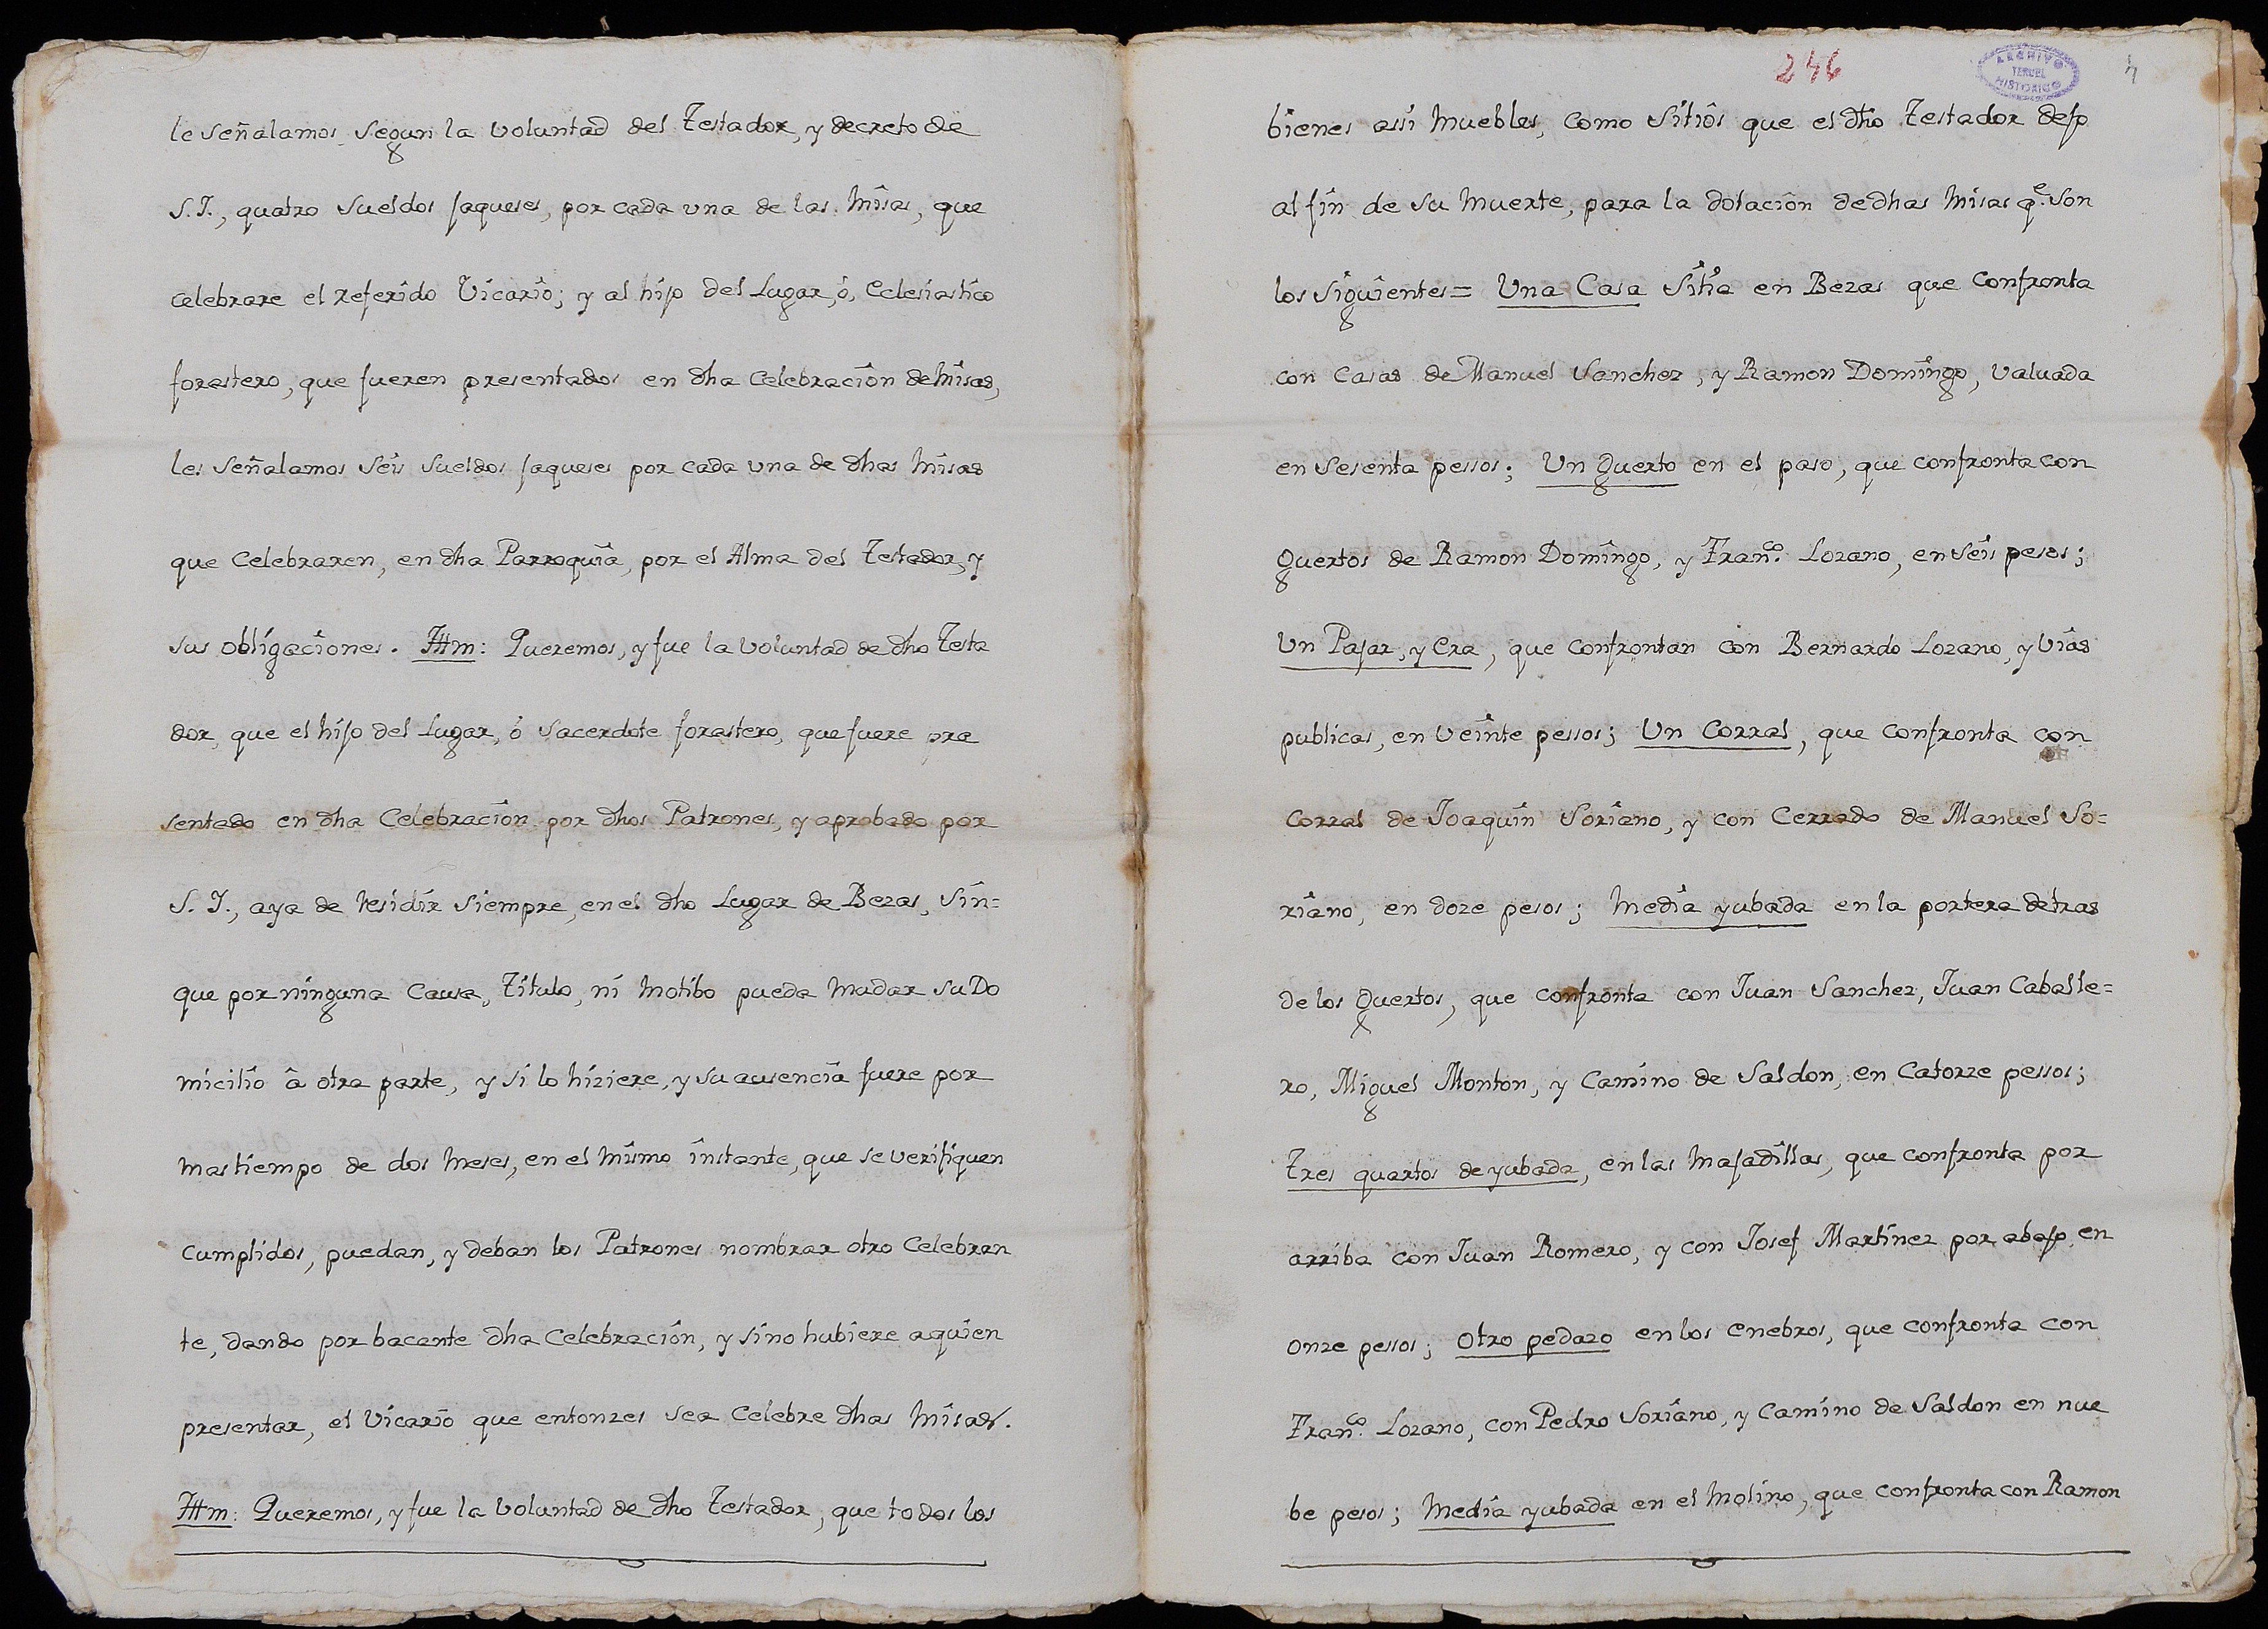 le señalamos segun la voluntad del Testador, y decreto de
S. I., quatro sueldos jaqueses, por cada una de las Misas, que
celebrare el referido Vicario; y al hijo del Lugar, ó, Eclesiastico
forastero, que fueren presentados en dha Celebracion de Misas,
les señalamos seis sueldos jaqueses por cada una de dhas Misas
que Celebraren, en dha Parroquia, por el Alma del Testador, y
sus obligaciones. Ittm: Queremos, y fue la voluntad de dho Testa
dor, que el hijo del Lugar, ó Sacerdote forastero, que fuere pre
sentado en dha Celebracion por dhos Patrones, y aprobado por
S. I., aya de residir siempre, en el dho Lugar de Bezas, sin=
que por ninguna Causa, Titulo, ni Motibo pueda Mudar su Do
micilio â otra parte, y si lo hiziere, y su ausencia fuere por
mas tiempo de dos Meses, en el Mismo instante, que se verifiquen
Cumplidos, puedan, y deban los Patrones nombrar otro Celebran
te, dando por bacante dha Celebración, y sino hubiere aquien
presentar, el Vicario que entonzes sea Celebre dhas Misas.
Ittm: Queremos, y fue la voluntad de dho Testador, que todos los
246
ARCHIVO
TERUEL
HISTORICO
4
bienes assi Muebles, como Sitios que el dho Testador dejo
al fin de su Muerte, para la dotacion de dhas Misas q.e son
los siguientes= Una Casa Sitia en Bezas que Confronta
con Casas de Manuel Sanchez, y Ramon Domingo, valuada
en Sesenta pessos; Un Guerto en el paso, que confronta con
Guertos de Ramon Domingo, y Fran.co Lozano, en seis pesos;
Un Pajar, y Era, que confrontan con Bernardo Lozano, y Vias
publicas, en veinte pessos; Un Corral, que confronta con
Corral de Joaquin Soriano, y con Cerrado de Manuel So=
riano, en doze pesos; Media yubada en la portera detras
de los Guertos, que confronta con Juan Sanchez, Juan Caballe=
ro, Miguel Monton, y Camino de Saldon, en Catorze pessos;
Tres quartos de yubada, en las Majadillas, que confronta por
arriba con Juan Romero, y con Josef Martinez por abajo, en
onze pessos; Otro pedazo en los Enebros, que confronta con
Fran.co Lozano, con Pedro Soriano, y Camino de Saldon en nue
be pesos; Media yubada en el Molino, que confronta con Ramon